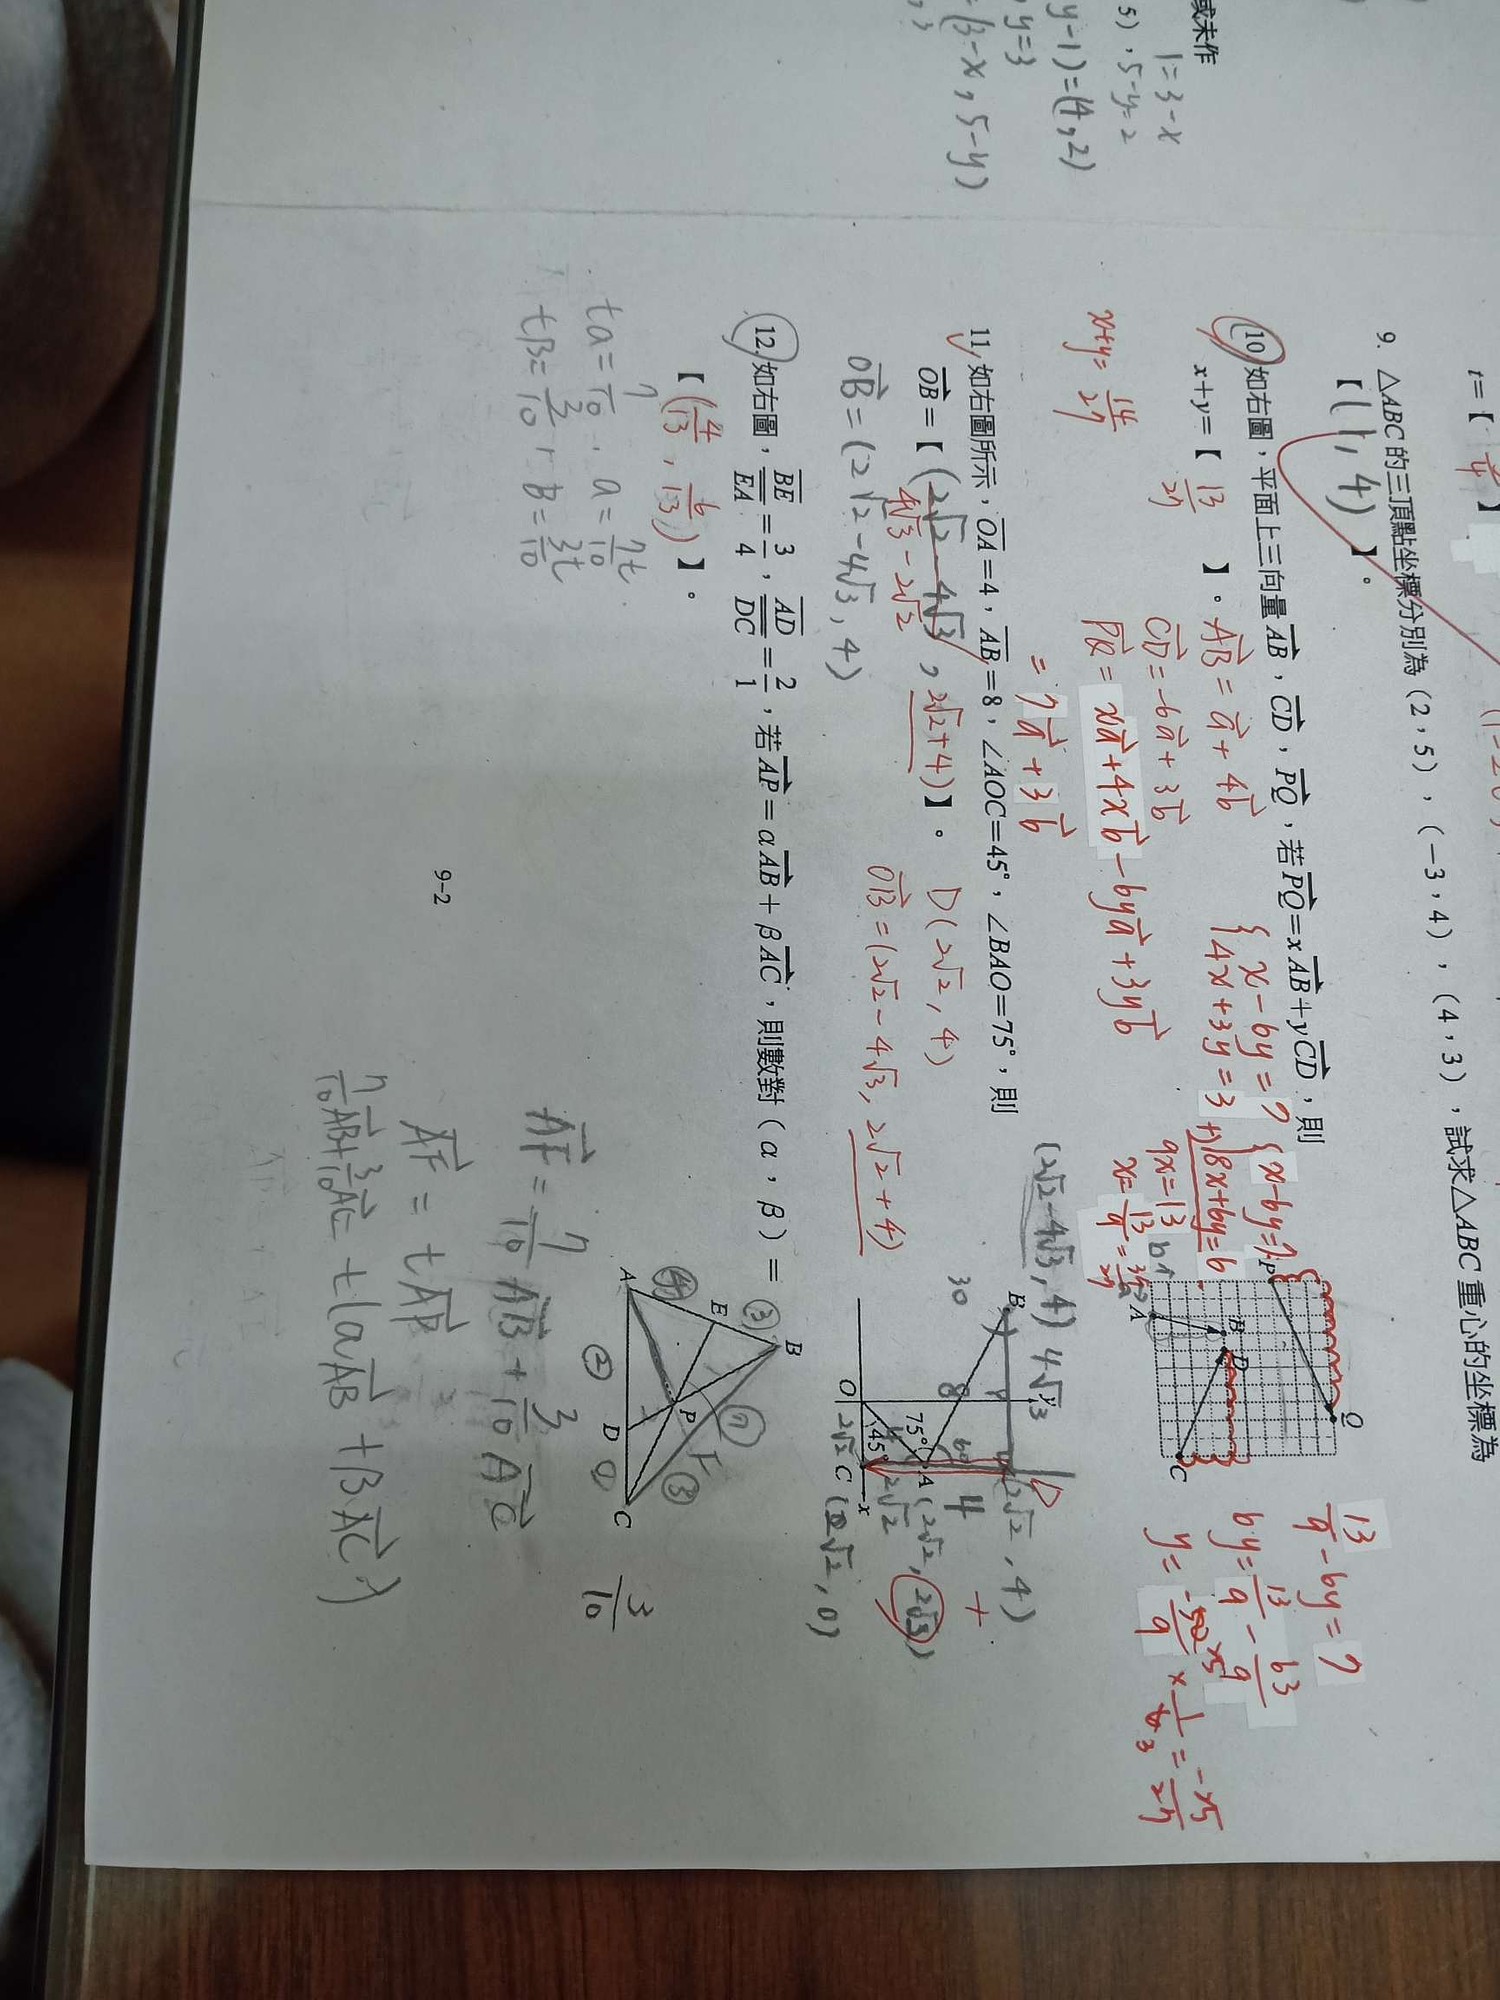 或未作
1=3-x
5),5-y=2
y-1)=(4,2)
,y=3
=(3-x,5-y)
,3
t=【
】
9. △ABC 的三頂點坐標分別為(2,5),(-3,4),(4,3),試求△ABC 重心的坐標為
【(1,4)】。
10 如右圖,平面上三向量 AB,CD,PQ,若 PQ = x AB + y CD,則
x+y=【 13/27 】。
AB = a + 4b
CD = -6a + 3b
PQ = xa + 4xb - 6ya + 3yb
= 7a + 3b
x+y= 14/27
{ x-6y=7
4x+3y=3
{ x-6y=7
+) 8x+6y=6
9x=13
x= 13/9 = 39/27
13/9 - 6y = 7
6y = 13/9 - 63/9
y= × 1/6 = -25/27
P
Q
A
B
D
C
11. 如右圖所示,OA=4,AB=8,∠AOC=45°,∠BAO=75°,則
OB=【(2√2-4√3, 2√2+4)】。
4√3-2√2
OB=(2√2-4√3,4)
D(2√2,4)
OB=(2√2-4√3, 2√2+4)
(2√2-4√3,4)
4√3
30
B
8
75°
60
A
45°
O
C
x
y
D
4
(2√2,4)
2√2
2√2
(2√2, 2√3)
(2√2,0)
12. 如右圖,BE/EA = 3/4,AD/DC = 2/1,若 AP = α AB + β AC,則數對(α,β)=
【(4/13, 6/13)】。
ta= 7/10, a= 7t/10
tB= 3/10, B= 3t/10
AF = 7/10 AB + 3/10 AC
AF = tAP
7/10 AB + 3/10 AC = t(αAB + βAC)
3/10
A
B
C
D
E
P
F
④
③
②
①
⑦
③
9-2